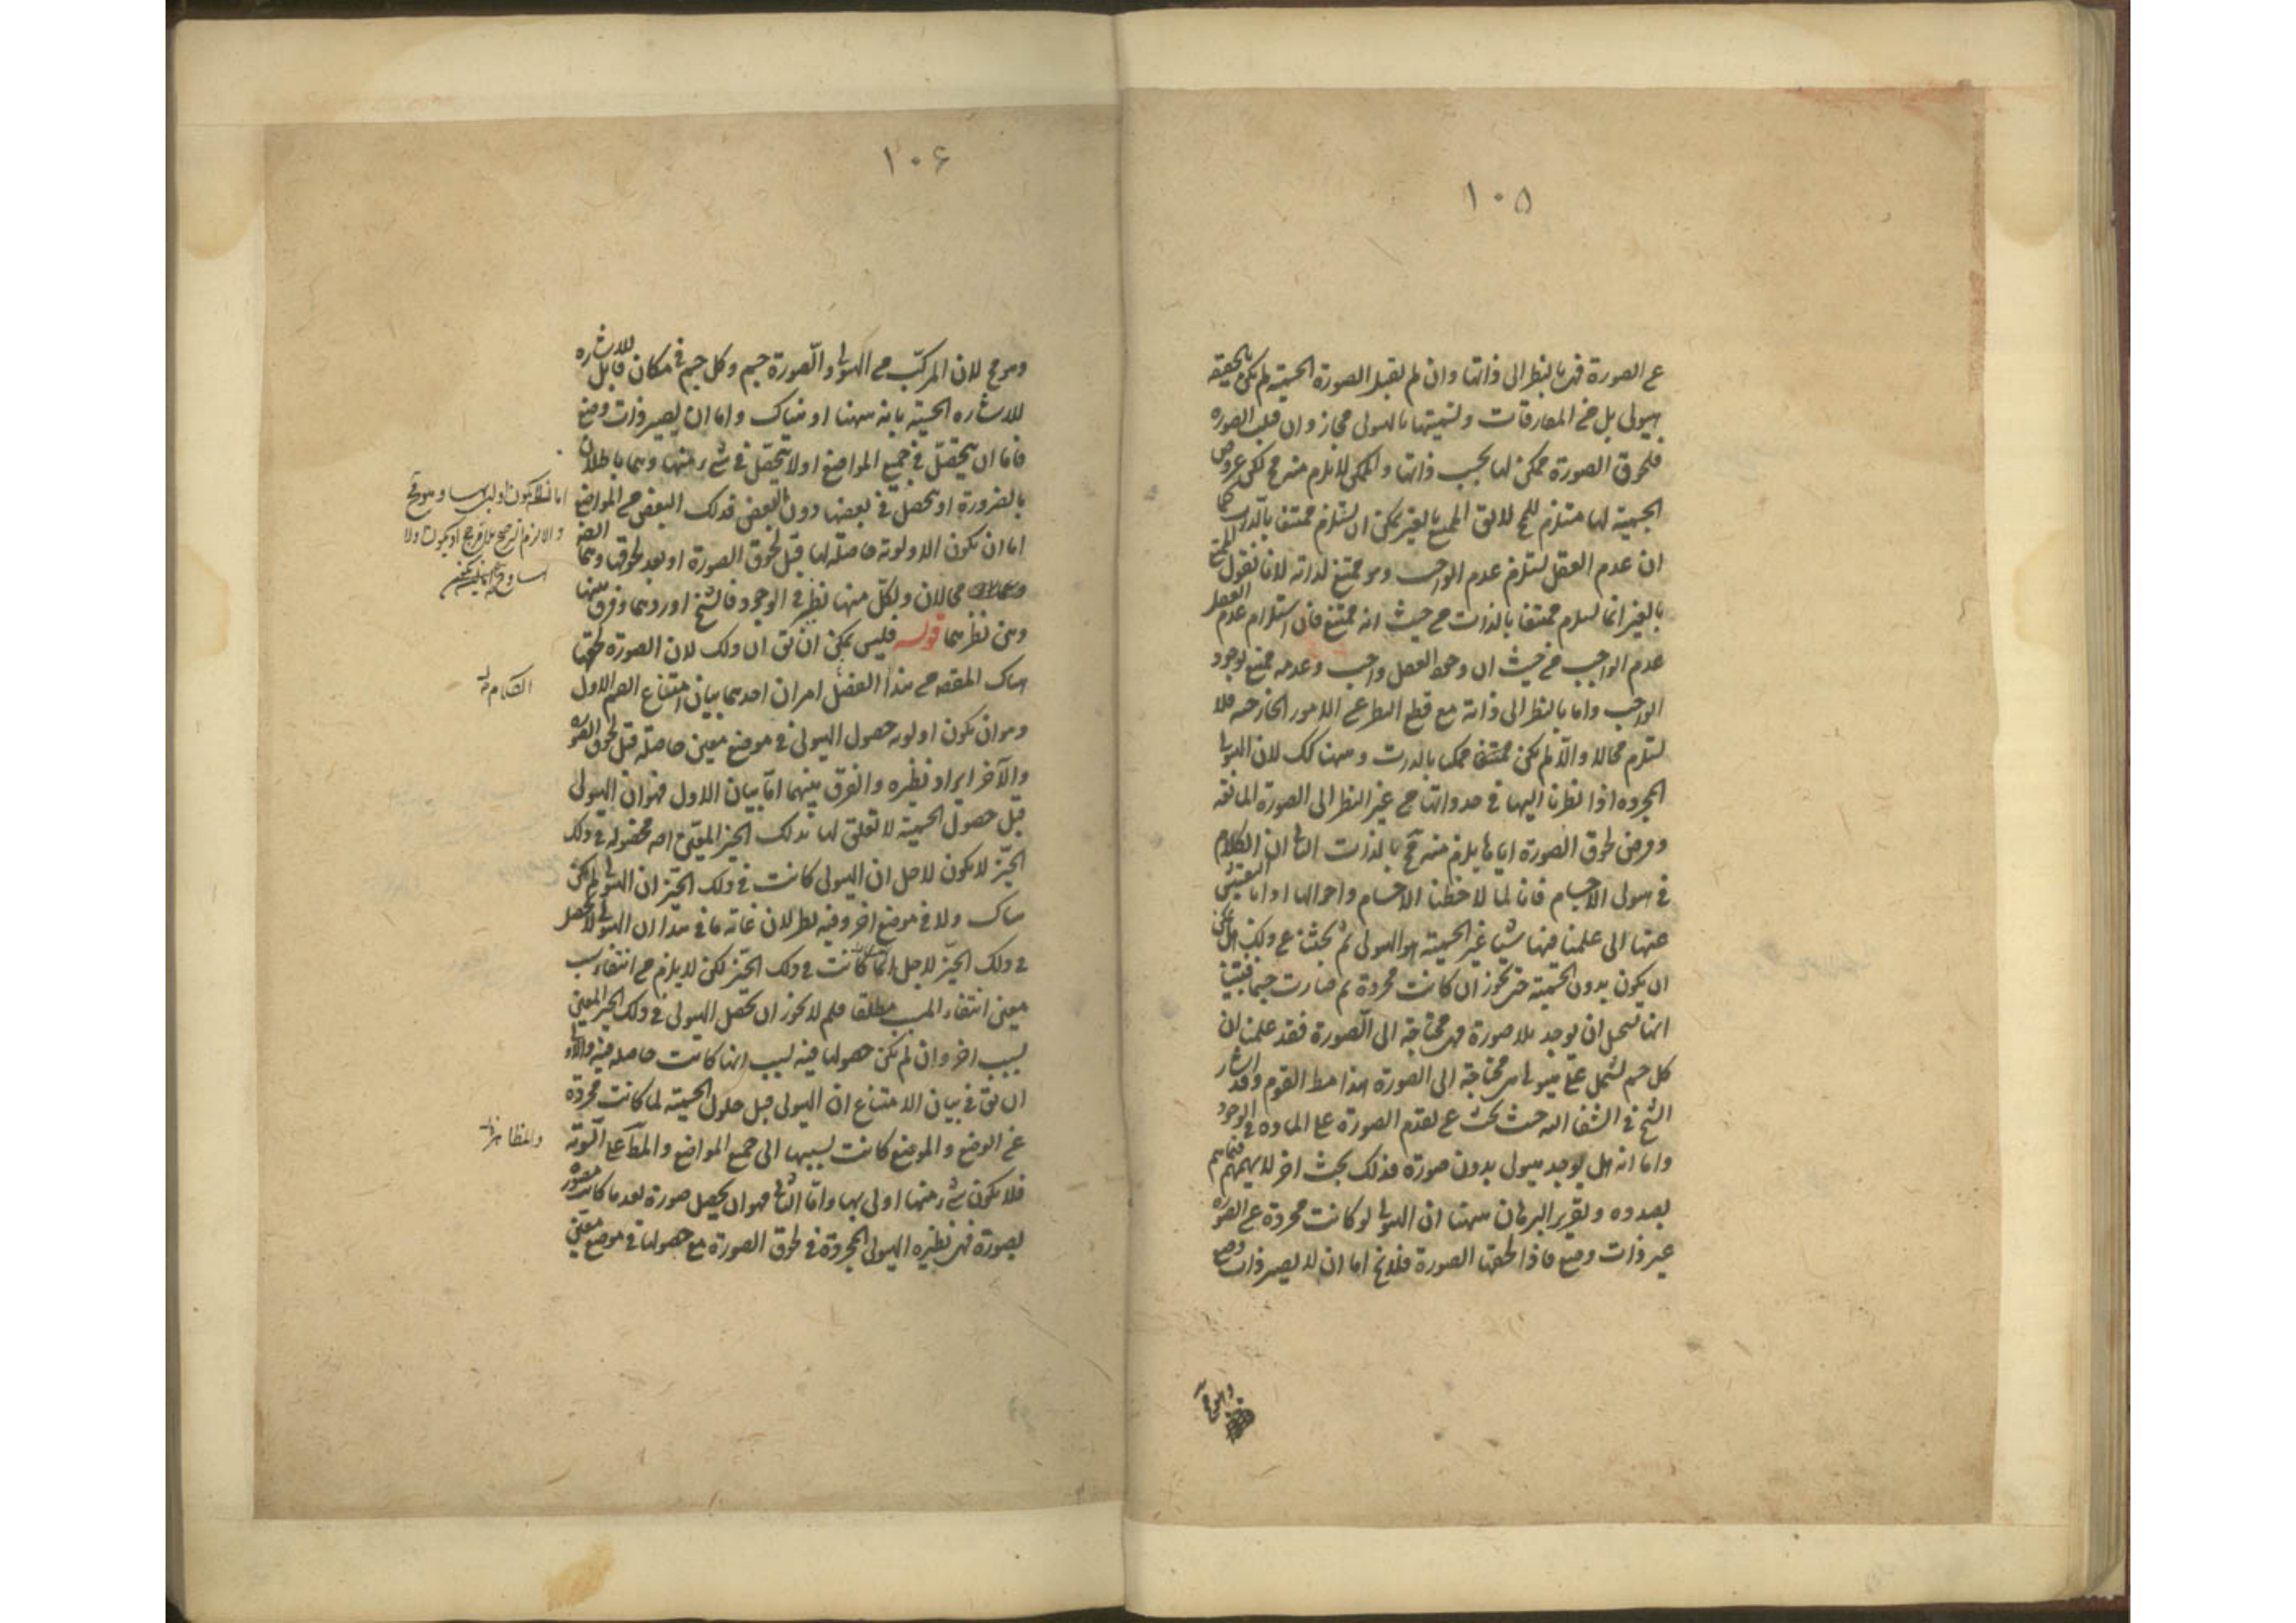 ١٠٥
عن الصورة فهي بالنظر الى ذاتها وان لم تقبل الصورة الجسمية لم تكن بالحقيقة
هيولى بل من المفارقات وتسميتها بالهيولى مجاز وان قبلت الصورة
فلحوق الصورة ممكن لها بحسب ذاتها والممكن لا يلزم منه مح لكن عروض
الجسمية لها مستلزم للمح لا يقال الممتنع بالغير يمكن ان يستلزم ممتنعا بالذات كما
ان عدم العقل يستلزم عدم الواجب وهو ممتنع لذاته لانا نقول الممتنع
بالغير انما يستلزم ممتنعا بالذات من حيث انه ممتنع فان استلزام عدم العقل
عدم الواجب من حيث ان وجود العقل واجب وعدمه ممتنع لوجود
الواجب واما بالنظر الى ذاته مع قطع النظر عن الامور الخارجية فلا
يستلزم محالا والا لم يكن ممكنا بالذات وههنا كك لان الهيولى
المجردة اذا نظرنا اليها في حد ذاتها من غير النظر الى الصورة المانعة
وفرض لحوق الصورة اياها يلزم منه مح بالذات الثانى ان الكلام
في هيولى الاجسام فانا لما لاحظنا الاجسام واحوالها وادانا التفتيش
عنها الى علمنا فيها شيئا غير الجسمية هو الهيولى ثم بحثنا عن ذلك هل يمكن
ان يكون بدون الجسمية حتى يجوز ان كانت مجردة ثم صارت جسما فبينا
انها يستحيل ان يوجد بلا صورة فهي محتاجة الى الصورة فقد علمنا ان
كل جسم يشتمل على هيولى هى محتاجة الى الصورة هذا مط القوم وقد اشار
الشيخ في الشفا اليه حيث بحث عن تقدم الصورة على المادة في الوجود
واما انه هل يوجد هيولى بدون صورة فذلك بحث اخر لا يهمهم فيما هم
بصدده وتقرير البرهان ههنا ان الهيولى لو كانت مجردة عن الصورة
غير ذات وضع فاذا لحقتها الصورة فلا يخ اما ان لا يصير ذات وضع
وهو مح
١٠۶
وهو مح لان المركب من الهيولى والصورة جسم وكل جسم في مكان قابل للاشاره
للاشاره الحسية بانه ههنا او هناك واما ان يصير ذات وضع
فاما ان يتحصل في جميع المواضع او لا يتحصل في شىء منها وهما باطلان
بالضرورة او تحصل في بعضها دون البعض فذلك البعض من المواضع
اما ان تكون الاولوية حاصلة لها قبل لحوق الصورة او بعد لحوقها وهما
محالان ولكل منهما نظير في الوجود فالشيخ اوردهما وفرق بينهما
وبين نظيرهما قوله فليس يمكن ان يق ان ذلك لان الصورة لحقتها
هناك المقصود من هذا الفصل امران احدهما بيان امتناع القسم الاول
وهو ان تكون اولوية حصول الهيولى في موضع معين حاصلة قبل لحوق الصورة
والآخر ايراد نظيره والفرق بينهما اما بيان الاول فهو ان الهيولى
قبل حصول الجسمية لا تعلق لها بذلك الحيز المعين فحصوله في ذلك
الحيز لا يكون لاجل ان الهيولى كانت في ذلك الحيز اذ الهيولى لم تكن
هناك ولا في موضع اخر وفيه نظر لان غاية ما في هذا ان الهيولى لا تحصل
في ذلك الحيز لاجل انها كانت في ذلك الحيز لكن لا يلزم من انتفاء سبب
معين انتفاء المسبب مطلقا فلم لا يجوز ان تحصل الهيولى في ذلك الحيز المعين
بسبب اخر وان لم يكن حصولها فيه بسبب انها كانت حاصلة فيه والاولى
ان يق في بيان الامتناع ان الهيولى قبل حلول الجسمية لما كانت مجردة
عن الوضع والموضع كانت نسبتها الى جميع المواضع والمظاهر على السوية
فلا يكون شىء منها اولى بها واما الثانى فهو ان يحصل صورة بعد ما كانت مصورة
بصورة فهي نظيره الهيولى المجردة في لحوق الصورة مع حصولها في موضع معين